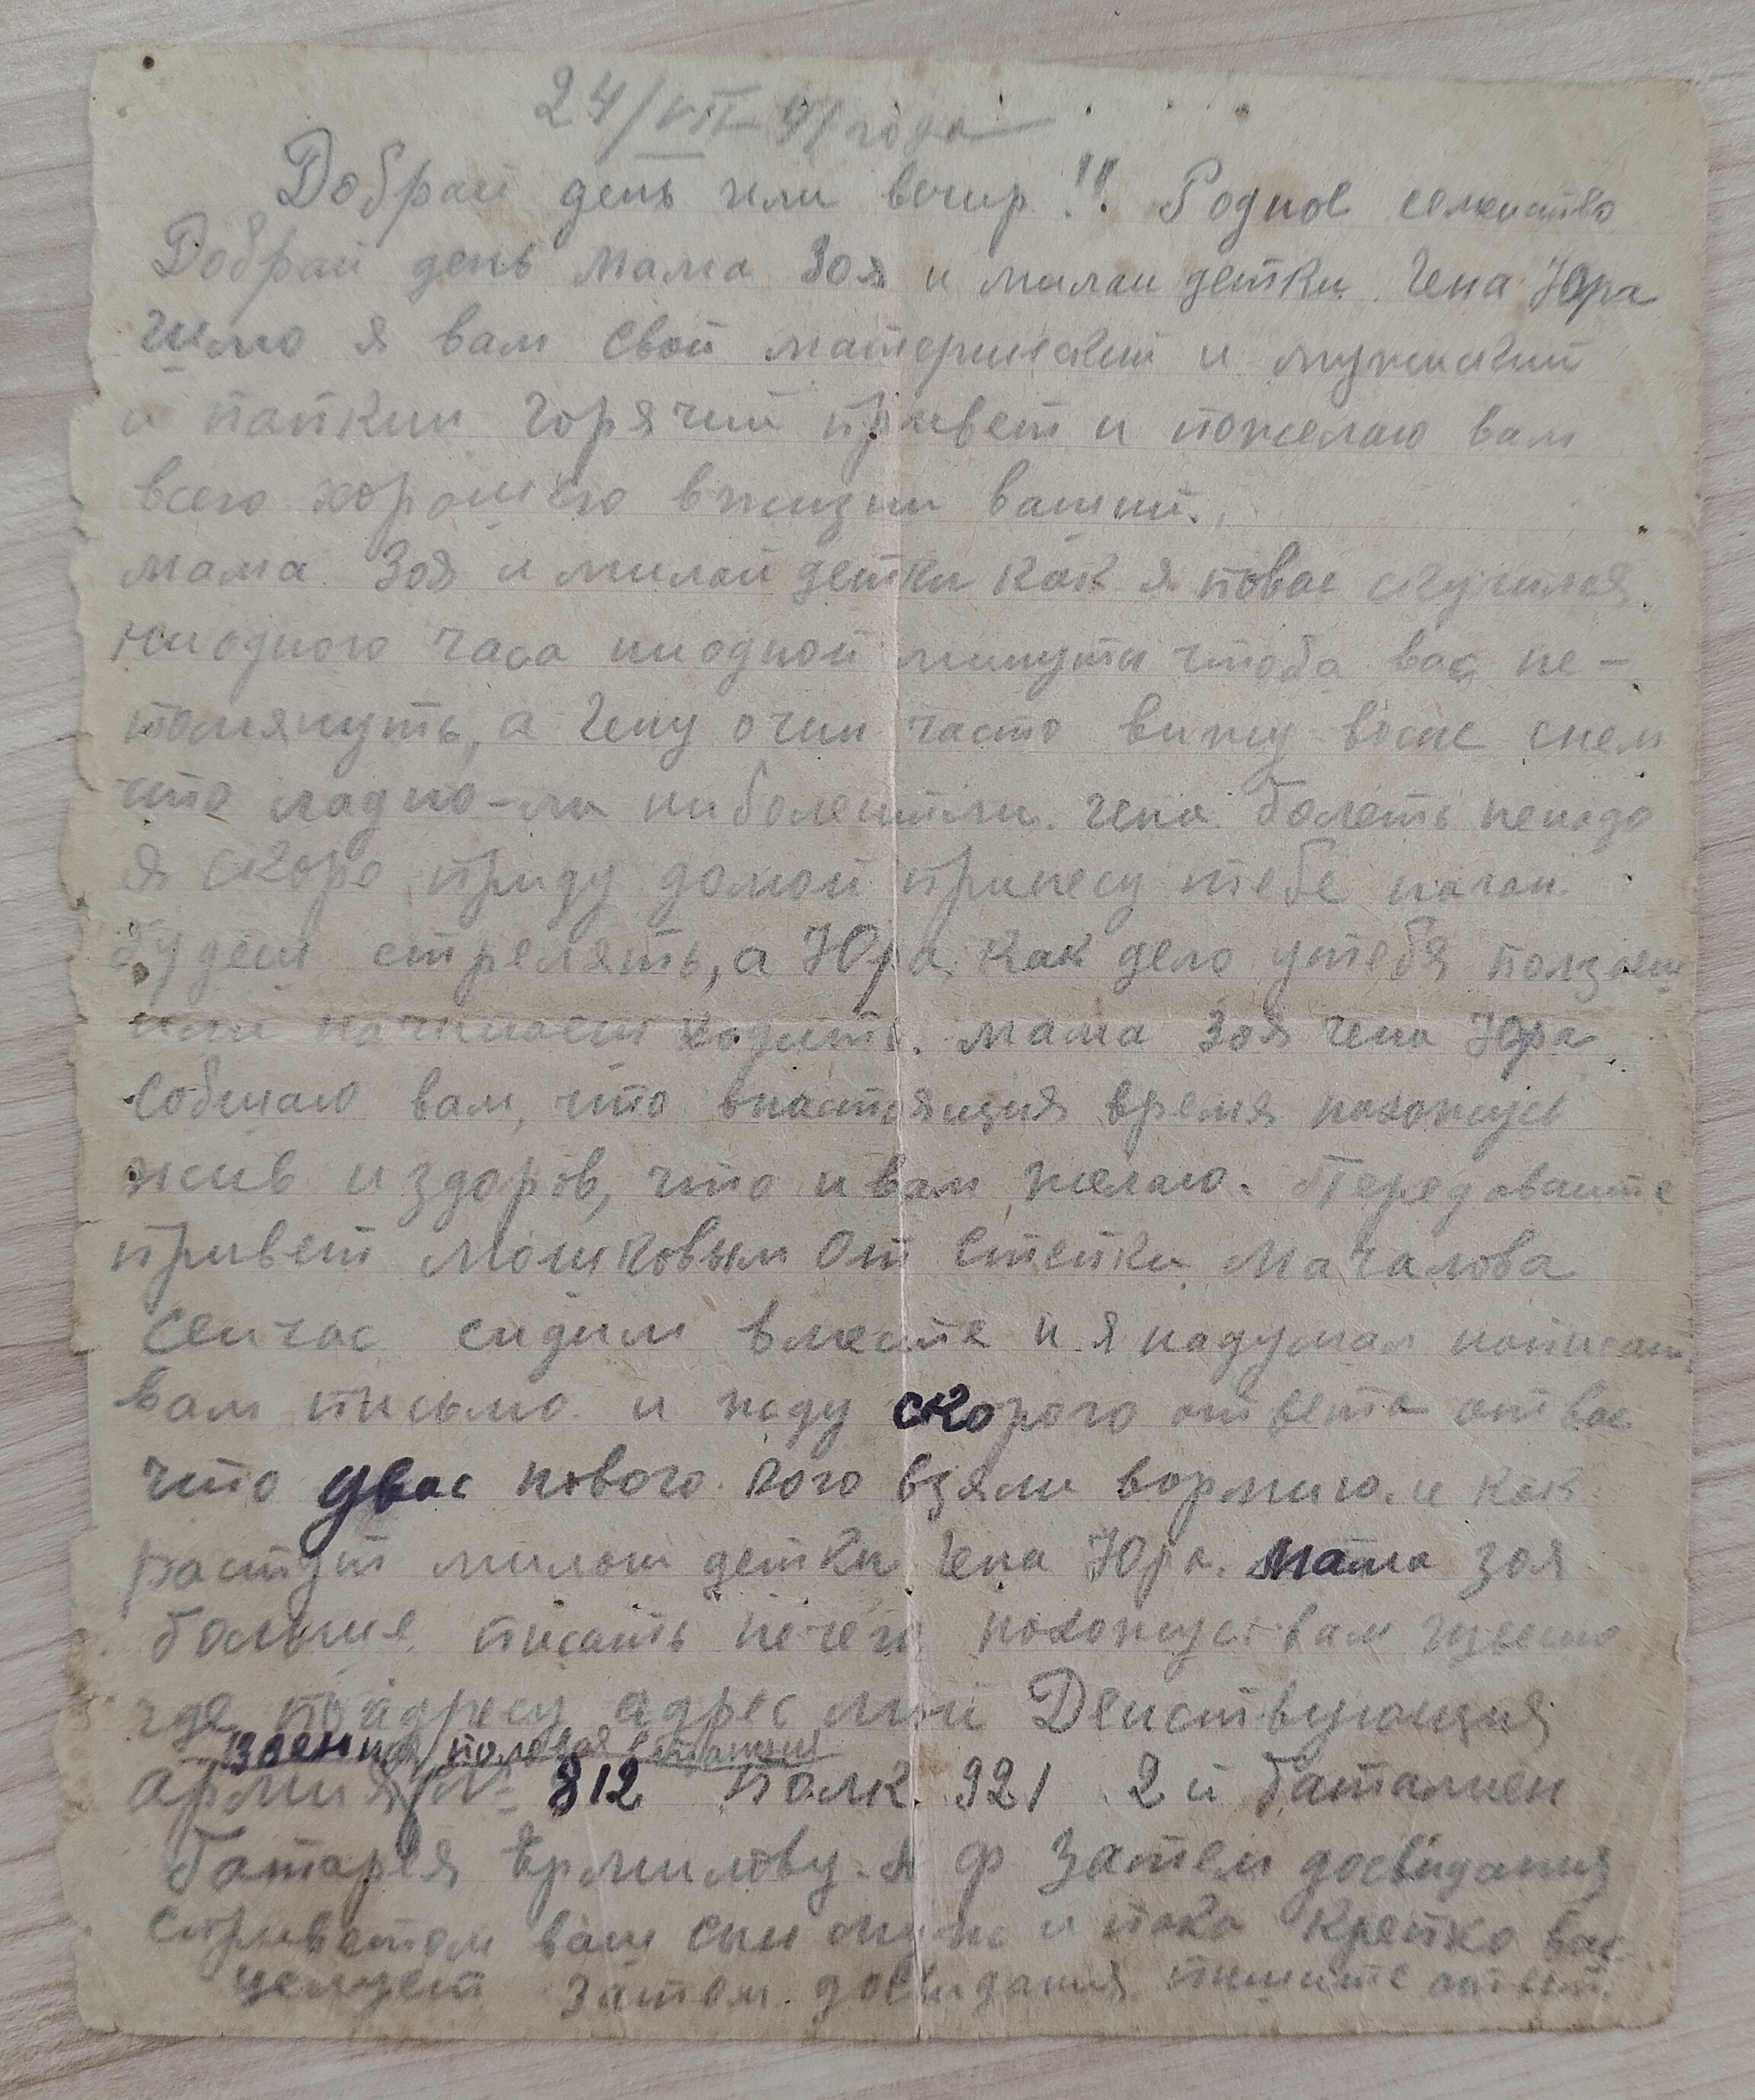 24/VII 41 года
Добрай день или вечир!! Родное семейство
Добрай день мама Зоя и милаи детки Гена Юра
Шлю я вам свой материнский и мужнский
и папкин горячий привет и пожелаю вам
всего хорошего вжизни вашии.
мама Зоя и милаи детки как я повас скучился
ниодного часа ниодной минуты чтоба вас не-
помянуть, а Гену очин часто вижу восне снем
что ладно-ли ниболеитли. Гена болеть ненадо
я скоро приду домой принесу тебе наган
будеш стрелять, а Юра, как дело утебя ползаеш
или начинаеш ходить. мама Зоя Гена Юра
Собщаю вам, что внастоящия время нахожусь
жив и здоров, что и вам желаю. Передоваите
привет Мошковым от Степки Мачалова
Сеичас сидим вместе и я надумал написат
вам письмо и жду скорого ответа отвас
что увас нового. кого взяли вормию. и как
растут милаи детки Гена Юра. мама Зоя
больше писать нечего нахожусь вам
где по адресу адрес мой Деиствующия
Военная/полевая станция
армия/№ 812 Полк 921 2й баталиён
батарея Ермилову. я ф Затем досвидания
спреветом ваш сын муж и папа крепко вас
целует Затем досвидания пишите ответ.